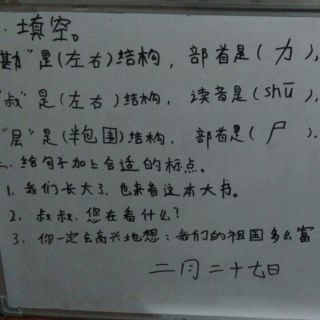 填空。
勘"是(左右)结构，部首是(力)，
"叔"是(左右)结构，读音是(shū)，
"层"是(半包围)结构，部首是(尸)，
二、给句子加上合适的标点。
1、我们长大了，也来看这本大书。
2、叔叔，您在看什么？
3、你一定会高兴地想：我们的祖国多么富
二月二十七日